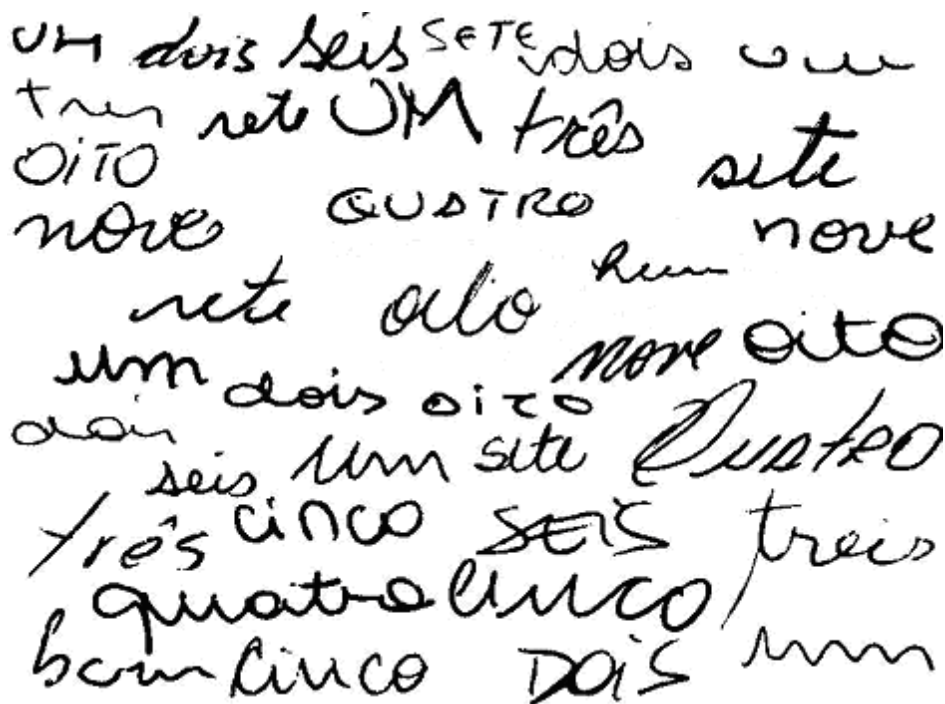 UM dois seis SETE dois um
tres sete UM três
OiTO sete
nove QUATRO nove
sete oito hum
um nove oito
dois oito
dois seis um sete Quatro
três cinco SEIS treis
quatro cinco
cinco DOiS um